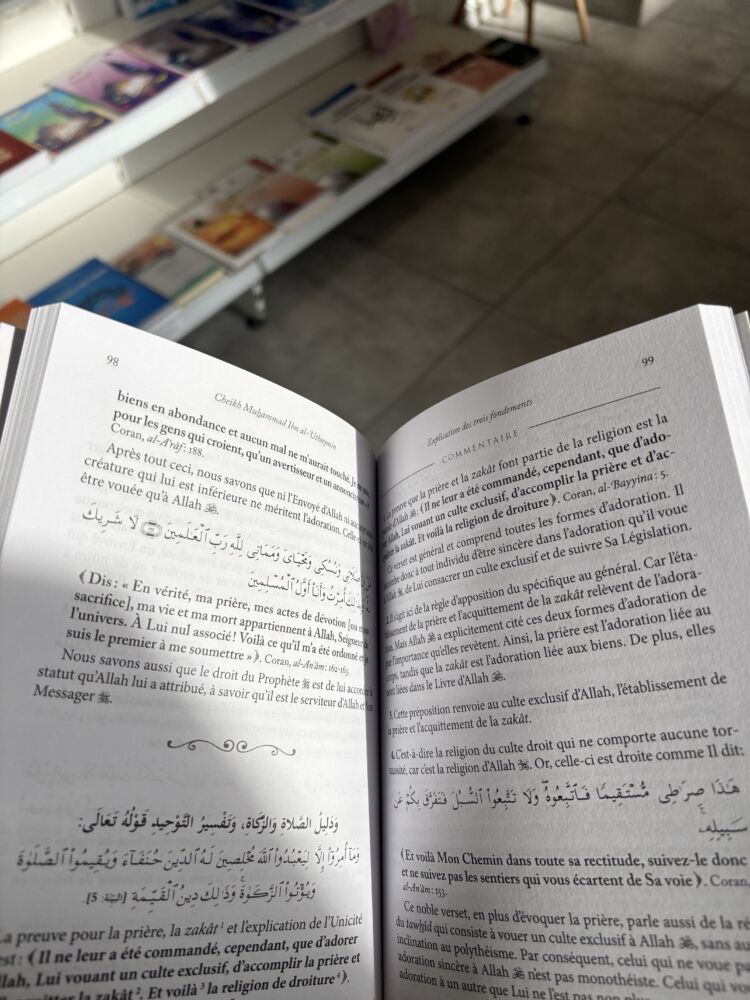 98
Cheikh Muḥammad Ibn al-'Uthaymîn
biens en abondance et aucun mal ne m'aurait touché. Je ne suis,
pour les gens qui croient, qu'un avertisseur et un annonciateur ⟩.
Coran, al-A'râf : 188.
Après tout ceci, nous savons que ni l'Envoyé d'Allah ni aucune
créature qui lui est inférieure ne méritent l'adoration. Celle-ci
être vouée qu'à Allah ﷻ.
صَلَاتِى وَنُسُكِى وَمَحْيَاىَ وَمَمَاتِى لِلَّهِ رَبِّ ٱلْعَٰلَمِينَ ۝ لَا شَرِيكَ
أُمِرْتُ وَأَنَا۠ أَوَّلُ ٱلْمُسْلِمِينَ
⟨ Dis : « En vérité, ma prière, mes actes de dévotion [ou mon
sacrifice], ma vie et ma mort appartiennent à Allah, Seigneur de
l'univers. À Lui nul associé ! Voilà ce qu'il m'a été ordonné et je
suis le premier à me soumettre » ⟩. Coran, al-An'âm : 162-163.
Nous savons aussi que le droit du Prophète ﷺ est de lui accorder le
statut qu'Allah lui a attribué, à savoir qu'il est le serviteur d'Allah et Son
Messager ﷺ.
وَدَلِيلُ الصَّلَاةِ وَالزَّكَاةِ، وَتَفْسِيرُ التَّوْحِيدِ قَوْلُهُ تَعَالَى:
وَمَآ أُمِرُوٓا۟ إِلَّا لِيَعْبُدُوا۟ ٱللَّهَ مُخْلِصِينَ لَهُ ٱلدِّينَ حُنَفَآءَ وَيُقِيمُوا۟ ٱلصَّلَوٰةَ
وَيُؤْتُوا۟ ٱلزَّكَوٰةَ وَذَٰلِكَ دِينُ ٱلْقَيِّمَةِ [البينة: 5].
La preuve pour la prière, la zakât¹ et l'explication de l'Unicité
est : ⟨ Il ne leur a été commandé, cependant, que d'adorer
Allah, Lui vouant un culte exclusif, d'accomplir la prière et
d'acquitter la zakât². Et voilà³ la religion de droiture⁴ ⟩.
99
Explication des trois fondements
COMMENTAIRE
La preuve que la prière et la zakât font partie de la religion est la
d'Allah ﷻ : ⟨ Il ne leur a été commandé, cependant, que d'ado-
rer Allah, Lui vouant un culte exclusif, d'accomplir la prière et d'ac-
quitter la zakât. Et voilà la religion de droiture ⟩. Coran, al-Bayyina : 5.
Ce verset est général et comprend toutes les formes d'adoration. Il
donc à tout individu d'être sincère dans l'adoration qu'il voue
de Lui consacrer un culte exclusif et de suivre Sa Législation.
2. Il s'agit ici de la règle d'apposition du spécifique au général. Car l'éta-
blissement de la prière et l'acquittement de la zakât relèvent de l'adora-
tion. Mais Allah ﷻ a explicitement cité ces deux formes d'adoration de
par l'importance qu'elles revêtent. Ainsi, la prière est l'adoration liée au
corps, tandis que la zakât est l'adoration liée aux biens. De plus, elles
sont liées dans le Livre d'Allah ﷻ.
3. Cette préposition renvoie au culte exclusif d'Allah, l'établissement de
la prière et l'acquittement de la zakât.
4. C'est-à-dire la religion du culte droit qui ne comporte aucune tor-
tuosité, car c'est la religion d'Allah ﷻ. Or, celle-ci est droite comme Il dit :
هَٰذَا صِرَٰطِى مُسْتَقِيمًا فَٱتَّبِعُوهُ وَلَا تَتَّبِعُوا۟ ٱلسُّبُلَ فَتَفَرَّقَ بِكُمْ عَن
سَبِيلِهِۦ
⟨ Et voilà Mon Chemin dans toute sa rectitude, suivez-le donc
et ne suivez pas les sentiers qui vous écartent de Sa voie ⟩. Coran,
al-An'âm : 153.
Ce noble verset, en plus d'évoquer la prière, parle aussi de la ré
du tawḥîd qui consiste à vouer un culte exclusif à Allah ﷻ, sans au
inclination au polythéisme. Par conséquent, celui qui ne voue pa
adoration sincère à Allah ﷻ n'est pas monothéiste. Celui qui vou
adoration à un autre que Lui ne l'est pas non